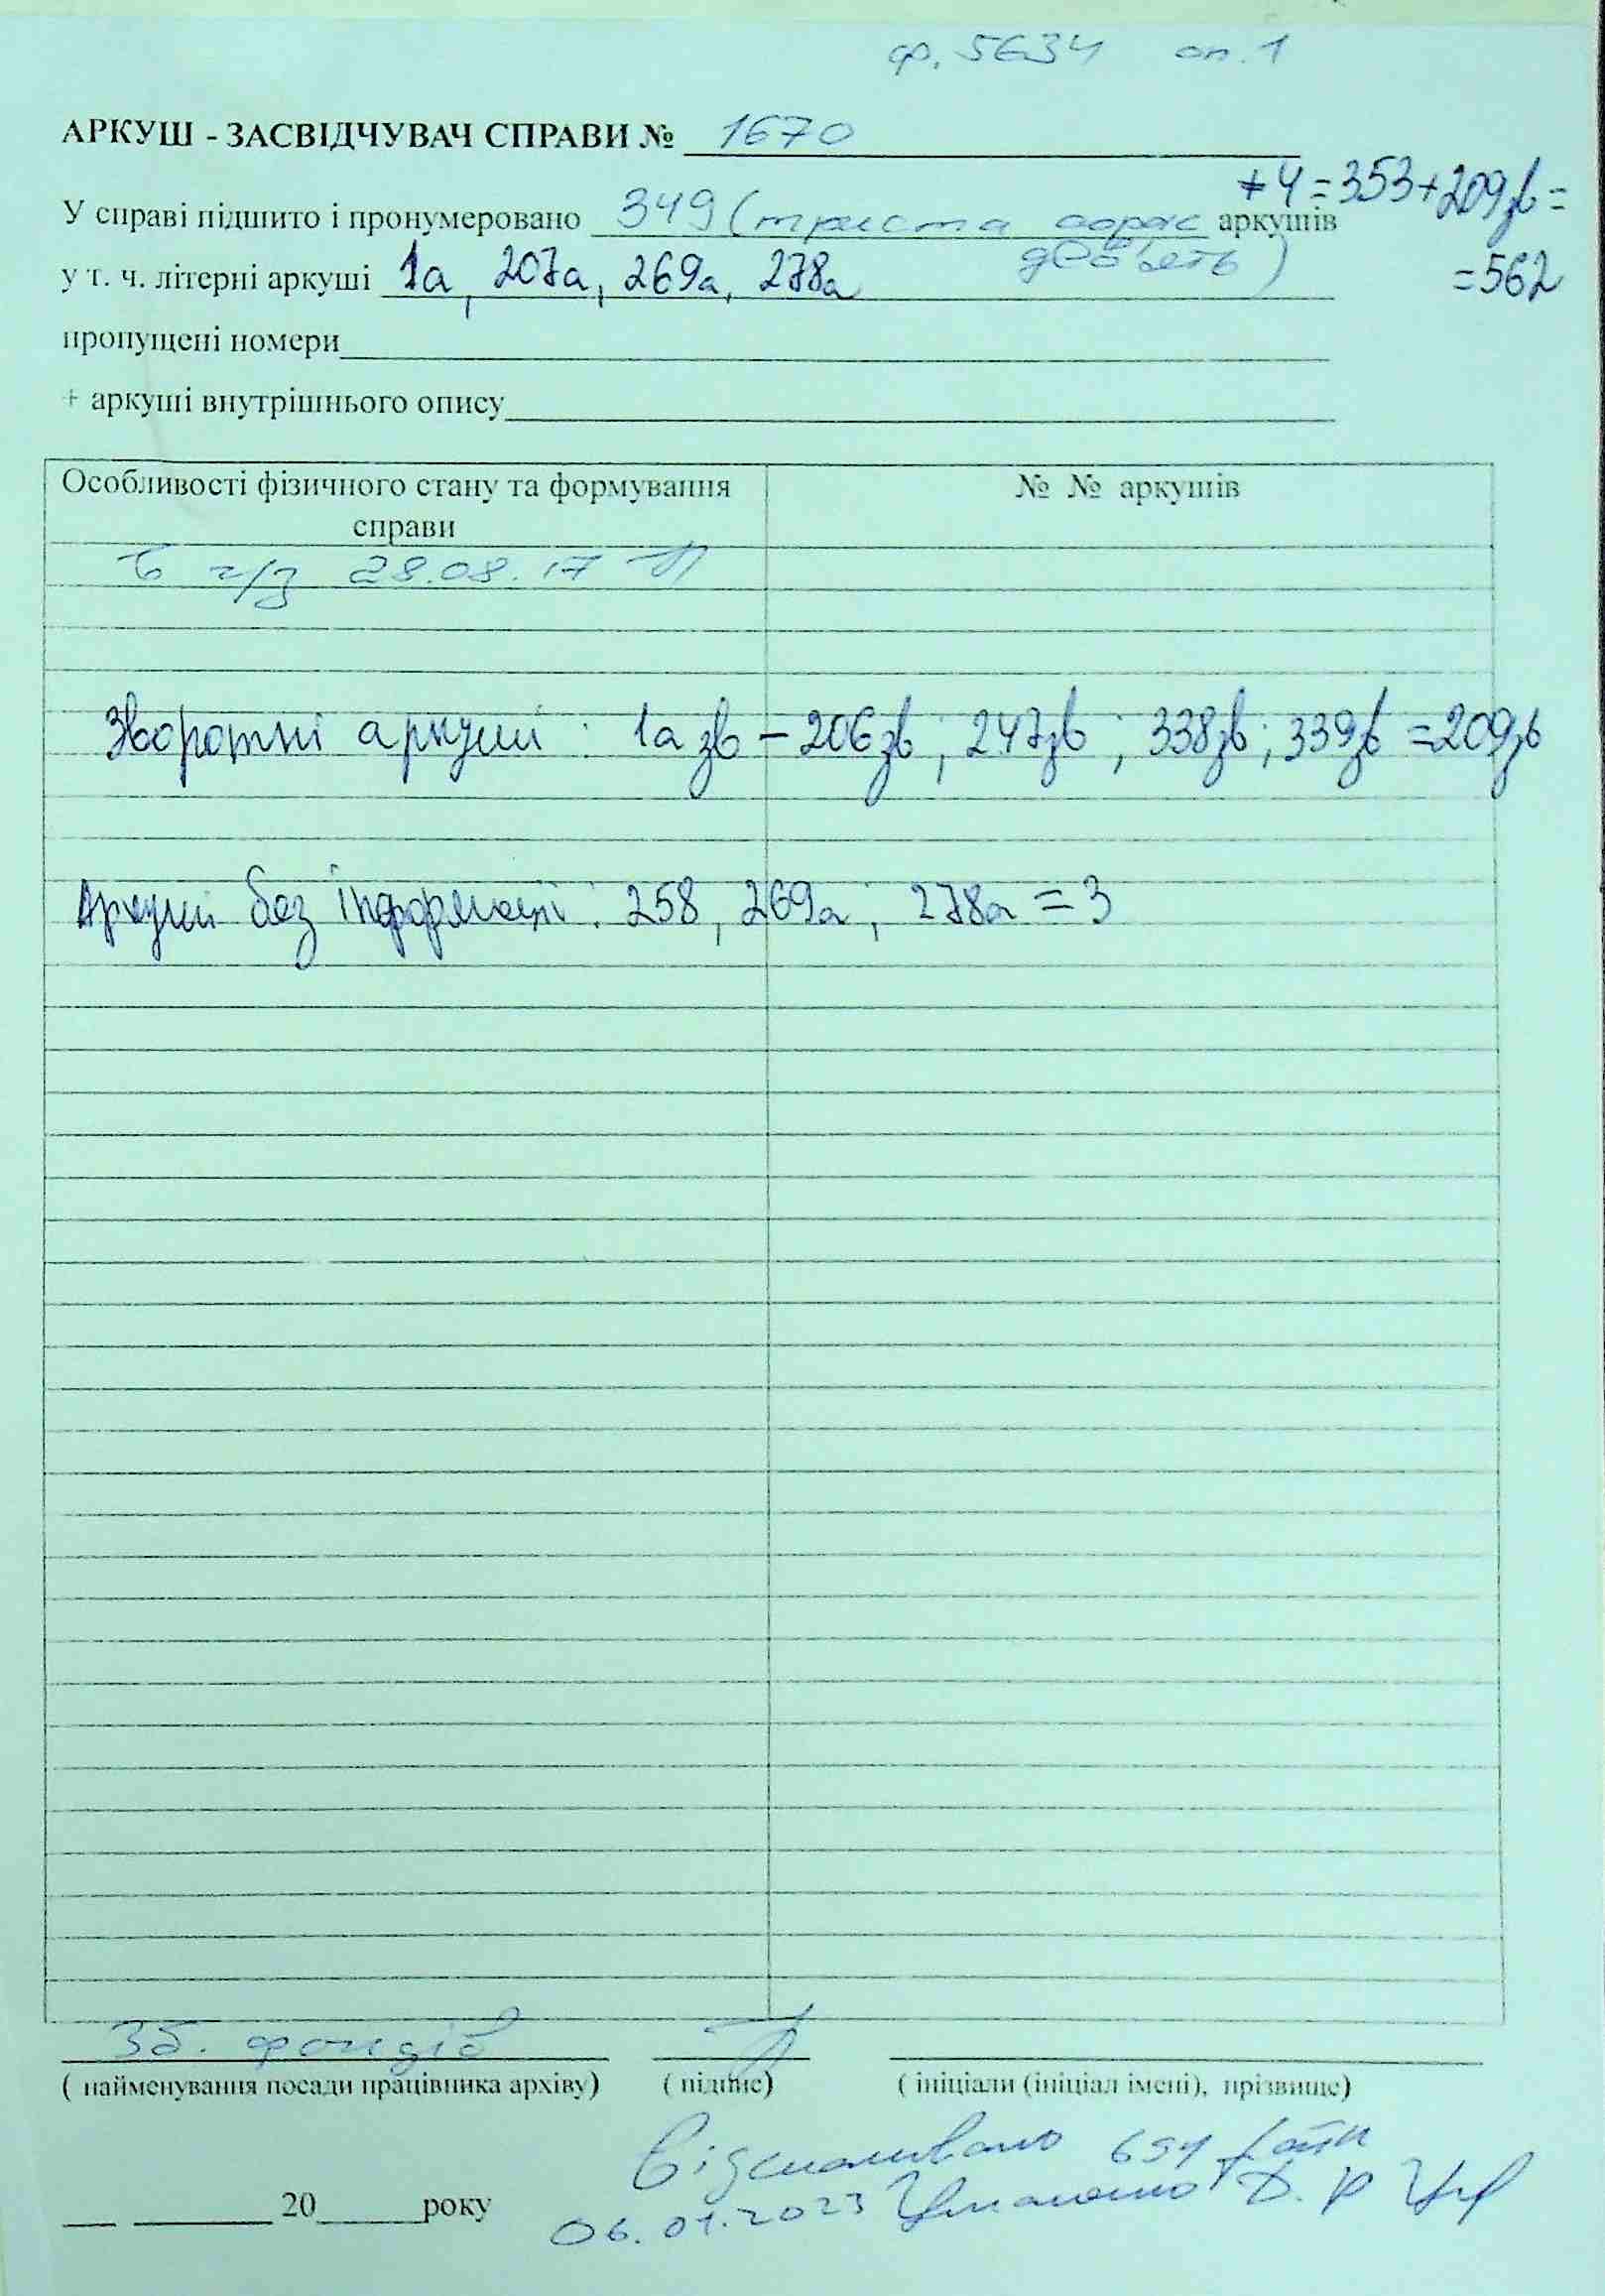 ф. 5634 оп. 1
АРКУШ - ЗАСВІДЧУВАЧ СПРАВИ № 1670
+ 4 = 353 + 209зв =
У справі підшито і пронумеровано 349 (триста сорок аркушів
дев'ять)
у т. ч. літерні аркуші 1а, 207а, 269а, 278а
= 562
пропущені номери
+ аркуші внутрішнього опису
Особливості фізичного стану та формування справи
№ № аркушів
28.08.17
Зворотні аркуші : 1а зв – 206зв ; 247зв ; 338зв ; 339зв = 209зв
Аркуші без інформації : 258, 269а ; 278а = 3
Зб. фондів
( найменування посади працівника архіву) ( підпис) ( ініціали (ініціал імені), прізвище)
Відскановано 654 файли
20 року
06.01.2023 Д. Р